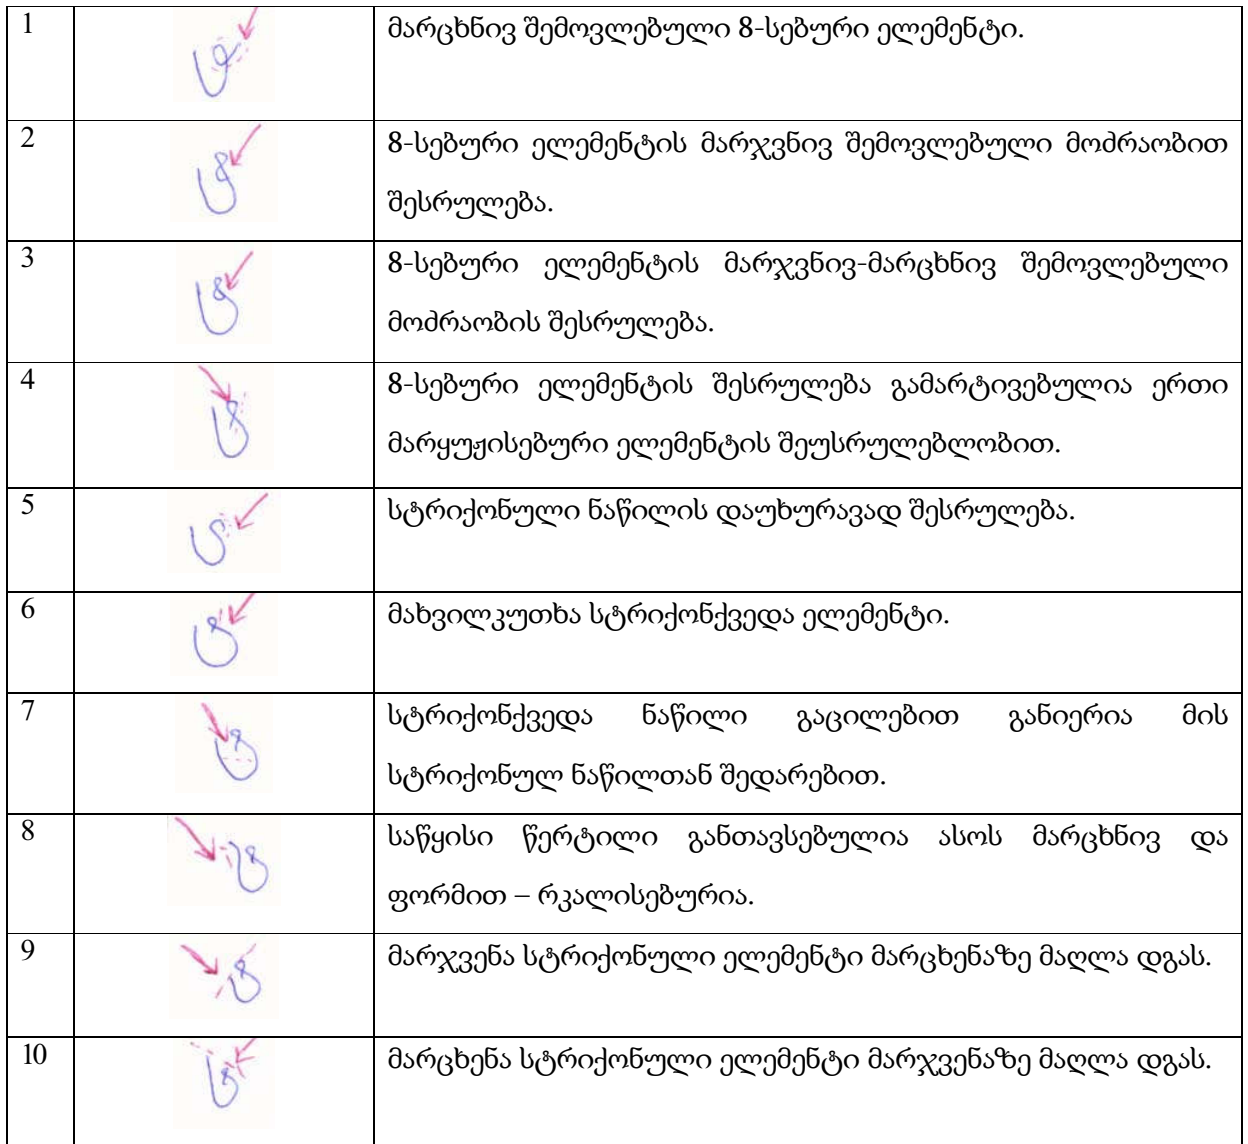 1 მარცხნივ შემოვლებული 8-სებური ელემენტი.
2 8-სებური ელემენტის მარჯვნივ შემოვლებული მოძრაობით
შესრულება.
3 8-სებური ელემენტის მარჯვნივ-მარცხნივ შემოვლებული
მოძრაობის შესრულება.
4 8-სებური ელემენტის შესრულება გამარტივებულია ერთი
მარყუჟისებური ელემენტის შეუსრულებლობით.
5 სტრიქონული ნაწილის დაუხურავად შესრულება.
6 მახვილკუთხა სტრიქონქვედა ელემენტი.
7 სტრიქონქვედა ნაწილი გაცილებით განიერია მის
სტრიქონულ ნაწილთან შედარებით.
8 საწყისი წერტილი განთავსებულია ასოს მარცხნივ და
ფორმით – რკალისებურია.
9 მარჯვენა სტრიქონული ელემენტი მარცხენაზე მაღლა დგას.
10 მარცხენა სტრიქონული ელემენტი მარჯვენაზე მაღლა დგას.